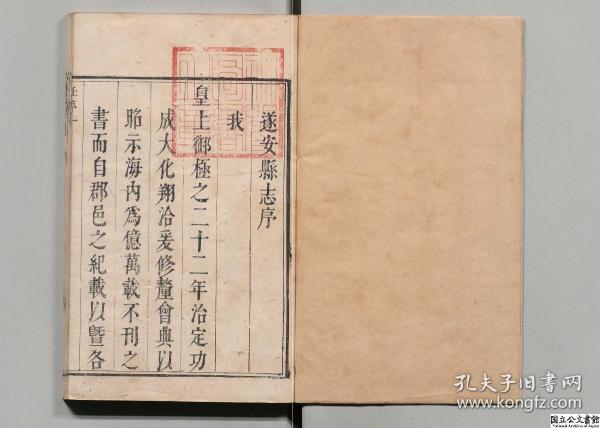 遂安縣志序
我
皇上御極之二十二年治定功
成大化翔洽爰修釐會典以
昭示海內爲億萬載不刊之
書而自郡邑之紀載以暨各
孔夫子旧书网
www.kongfz.com
国立公文書館
National Archives of Japan